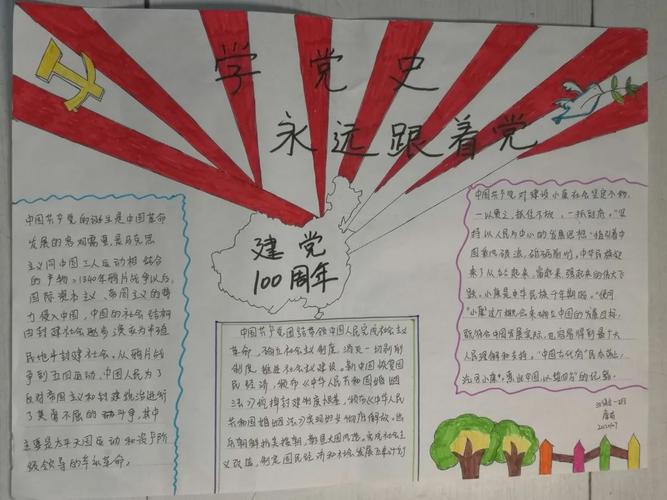 学党史
永远跟着党
建党
100周年
中国共产党的诞生是中国革命
发展的客观需要,是马克思
主义同中国工人运动相结合
的产物。1840年鸦片战争以后,
国际资本主义、帝国主义的势
力侵入中国,中国的社会结构
由封建社会逐步演变为半殖
民地半封建社会。从鸦片战
争到五四运动,中国人民为了
反对帝国主义和封建统治进行
了英勇不屈的斗争,其中
主要是太平天国运动和资产阶
级领导的辛亥革命。
中国共产党团结带领中国人民完成社会主义
革命,确立社会主义制度,消灭一切剥削
制度,推进社会主义建设。新中国恢复国
民经济,颁布《中华人民共和国婚姻
法》废除封建制度根基,颁布《中华人民
共和国婚姻法》实现妇女彻底解放。出
兵朝鲜抗美援朝,彰显大国风范,实现社会主
义改造,制定国民经济和社会发展五年计划
中国共产党对建设小康社会坚定不移,
一以贯之,抓住不放,一抓到底。"坚
持以人民为中心的发展思想"指引着中
国乘风破浪,砥砺前行,中华民族迎
来了从站起来、富起来、强起来的伟大飞
跃。小康是中华民族千年期盼,"使用
"小康"这个概念来确立中国的发展目标,
既符合中国发展实际,也容易得到最广大
人民理解和支持。"